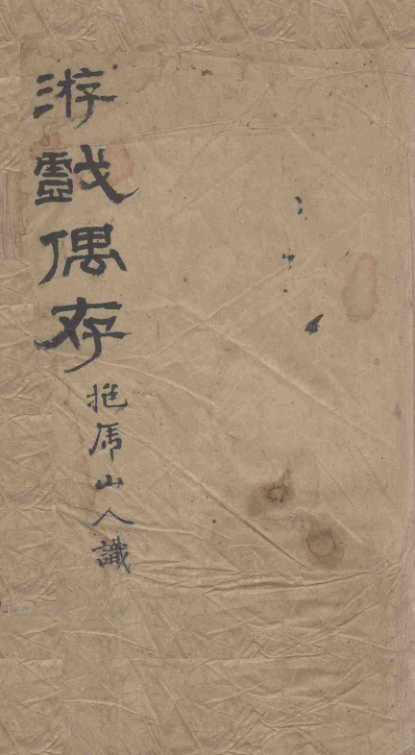 游戲偶存
抱乕山人識